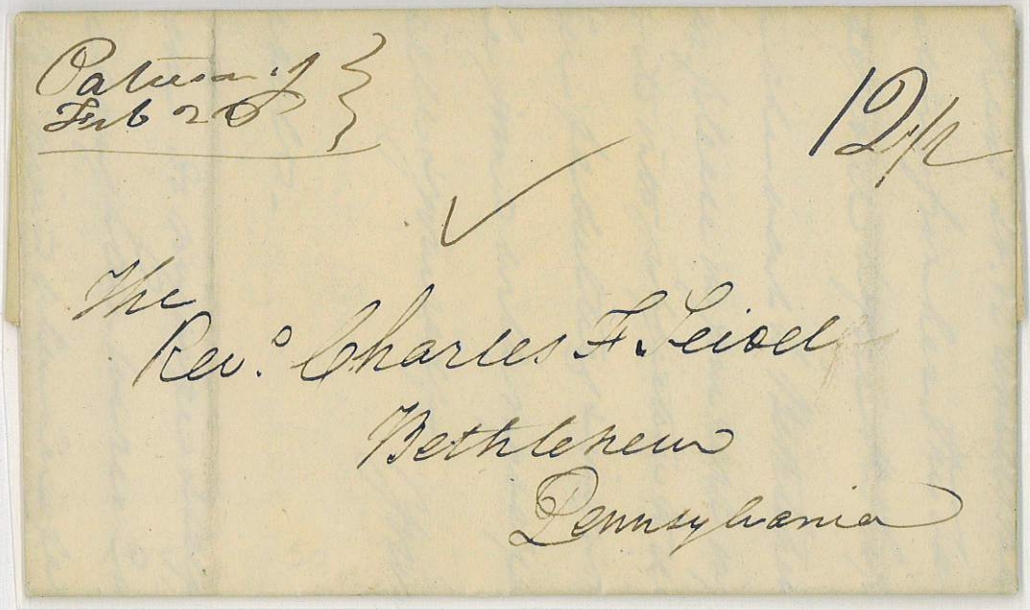 Feb 20
12 1/2
The
Revd. Charles F. Seidel
Bethlehem
Pennsylvania